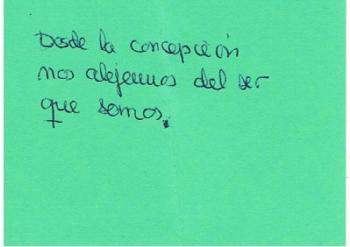 Desde la concepción
nos alejemos del ser
que somos.